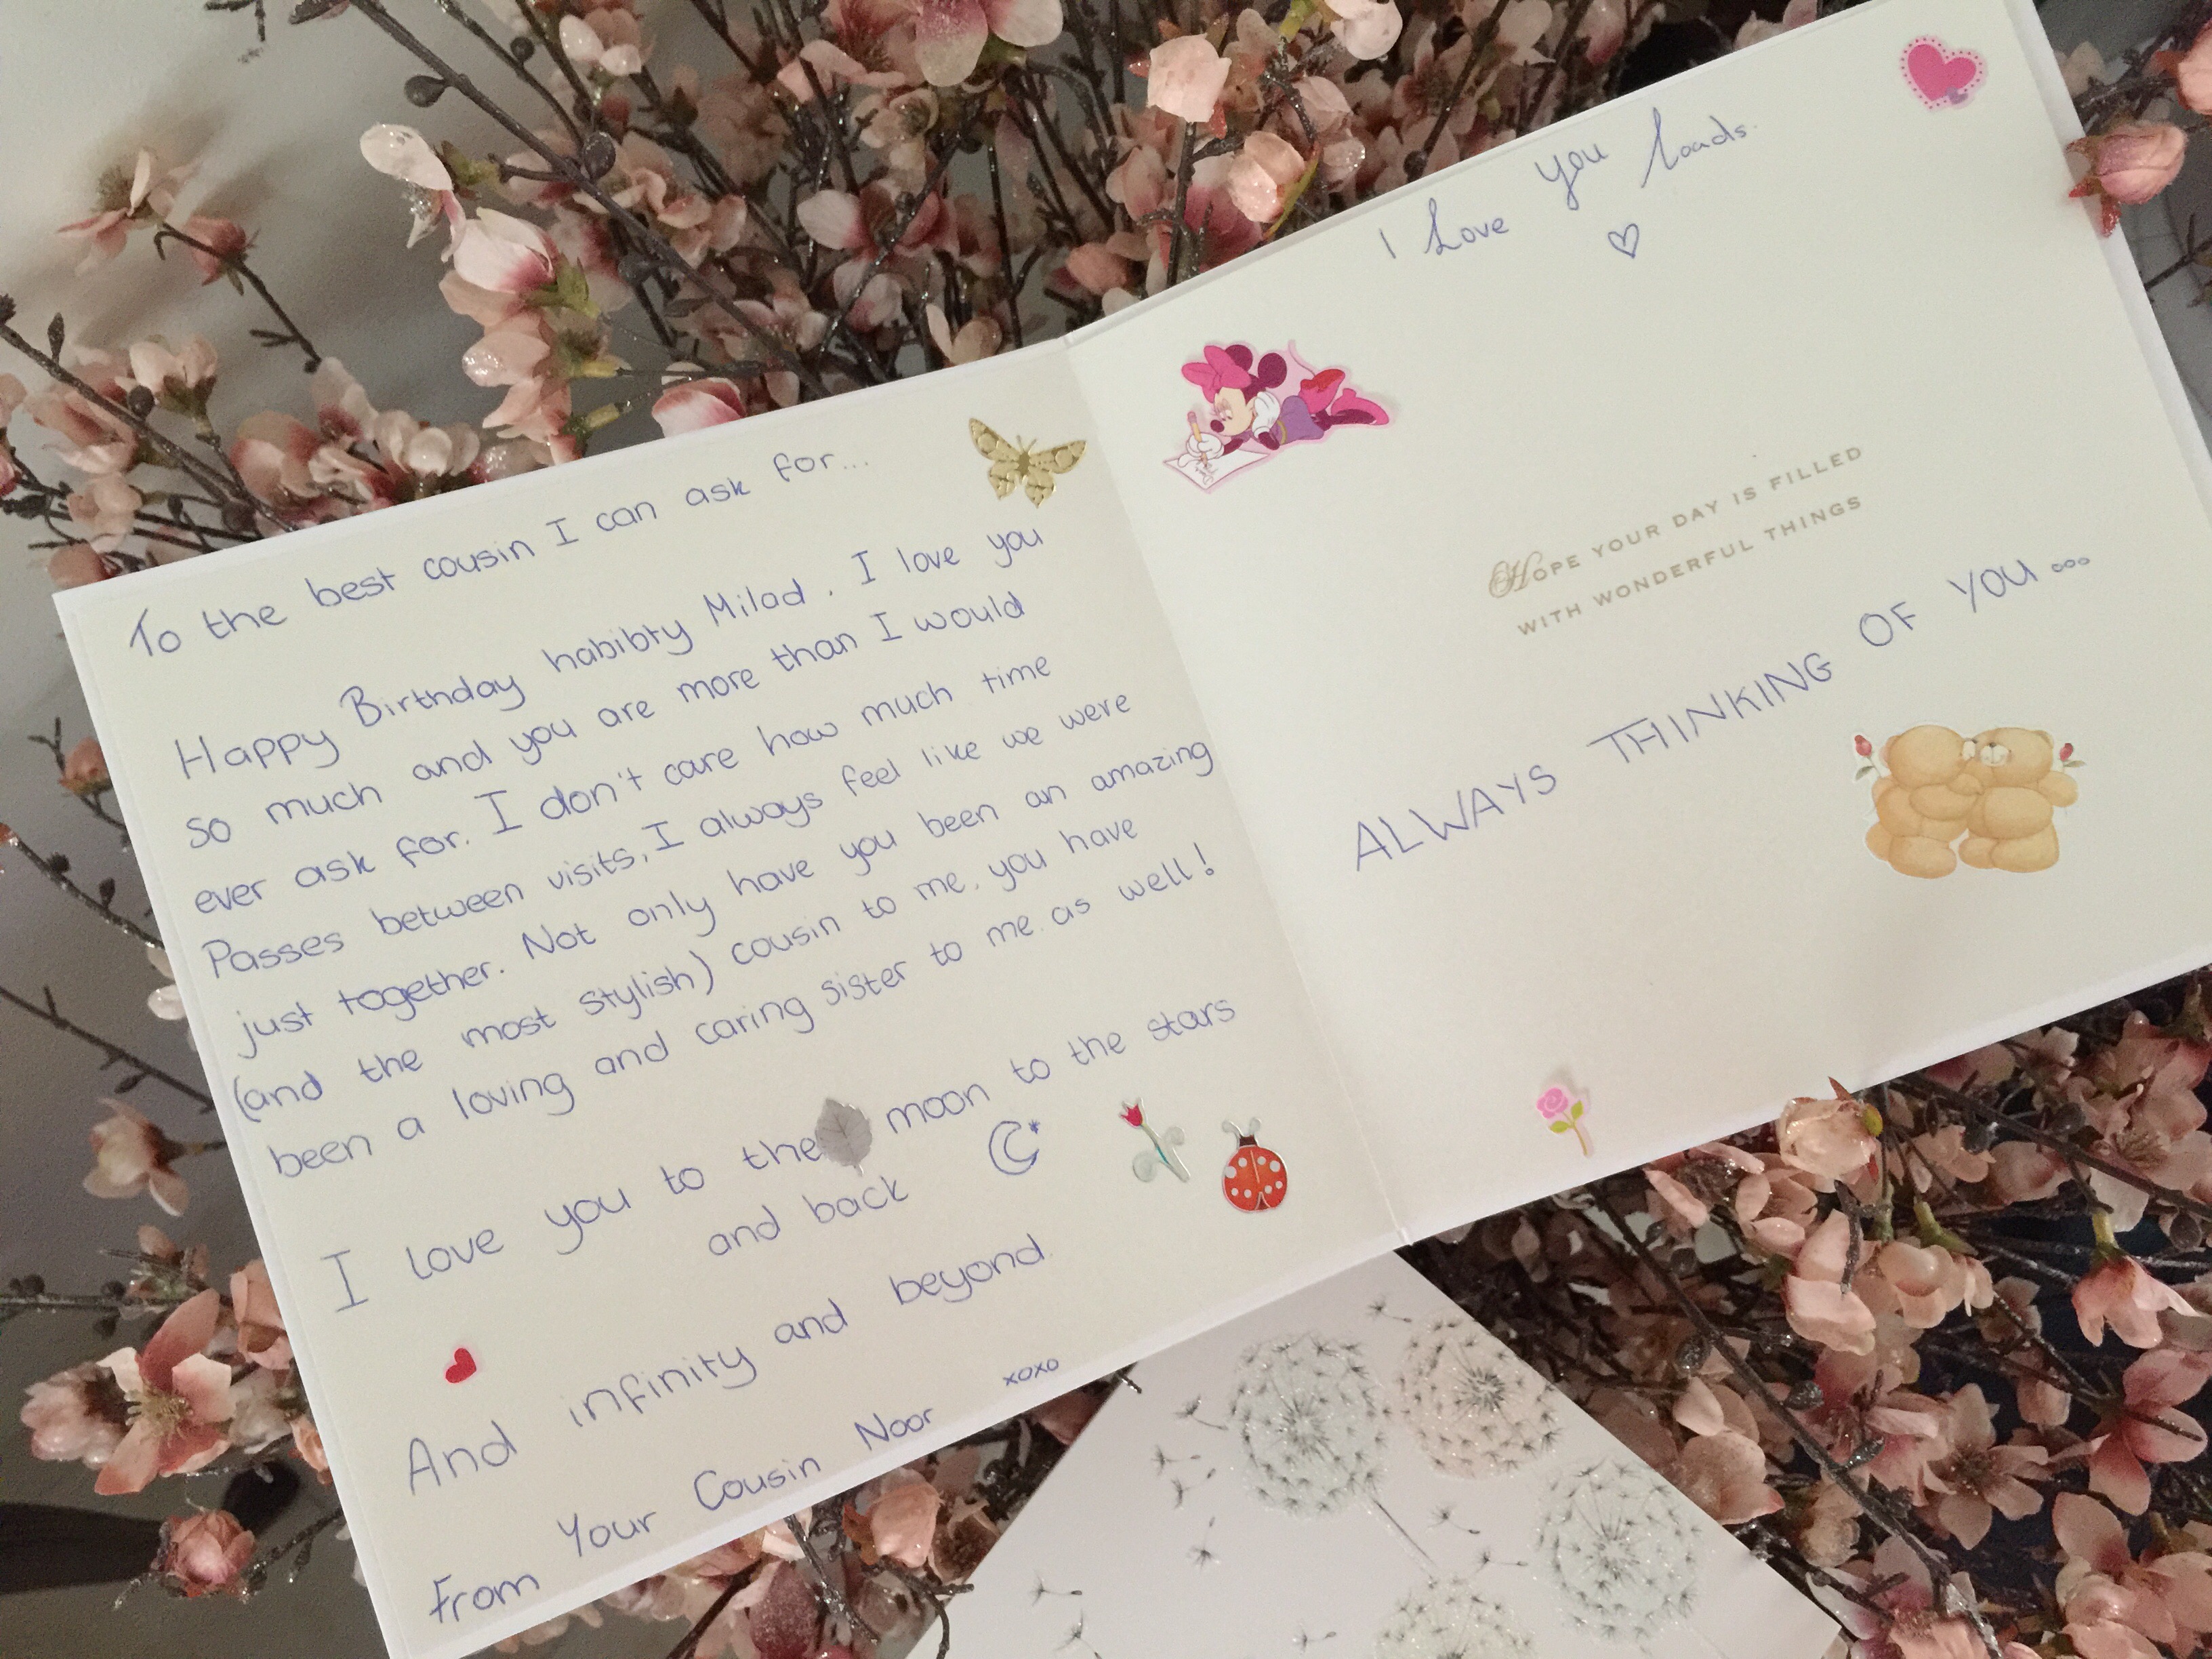 To the best cousin I can ask for...
Happy Birthday habibty Milad. I love you
so much and you are more than I would
ever ask for. I don't care how much time
Passes between visits, I always feel like we were
just together. Not only have you been an amazing
(and the most stylish) cousin to me, you have
been a loving and caring sister to me as well!
I love you to the moon to the stars
and back
And infinity and beyond.
xoxo
From Your Cousin Noor
I Love you loads.
HOPE YOUR DAY IS FILLED
WITH WONDERFUL THINGS
ALWAYS THINKING OF YOU...